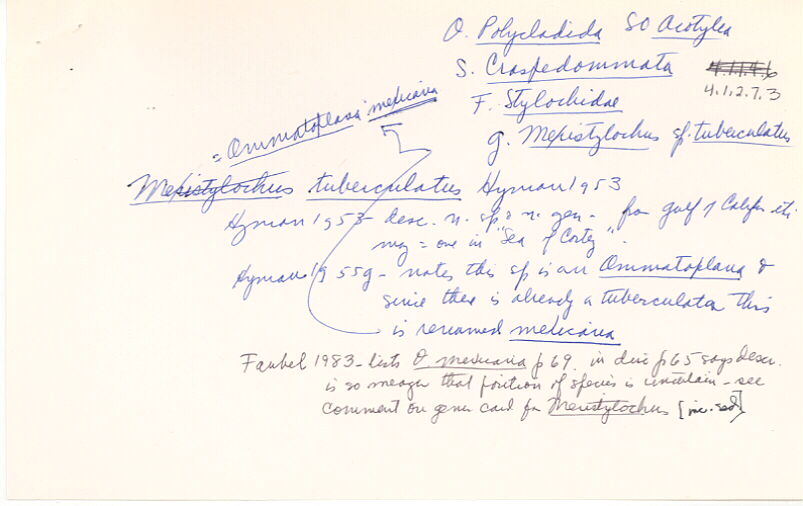 O. Polycladida SO Acotylea
S. Craspedommata
4.1.2.7.3
F. Stylochidae
g. Mexistylochus sp. tuberculatus
= Ommatoplana mexicana
Mexistylochus tuberculatus Hyman 1953
Hyman 1953 - desc. n. sp & n. gen - from gulf of Calif. etc.
may = one in "Sea of Cortez".
Hyman 1955g - notes this sp is an Ommatoplana &
since there is already a tuberculata this
is renamed mexicana
Faubel 1983 - lists O. mexicana p 69. in disc p 65 says descr.
is so meager that position of species is uncertain - see
comment on genus card for Mexistylochus [inc. sed]